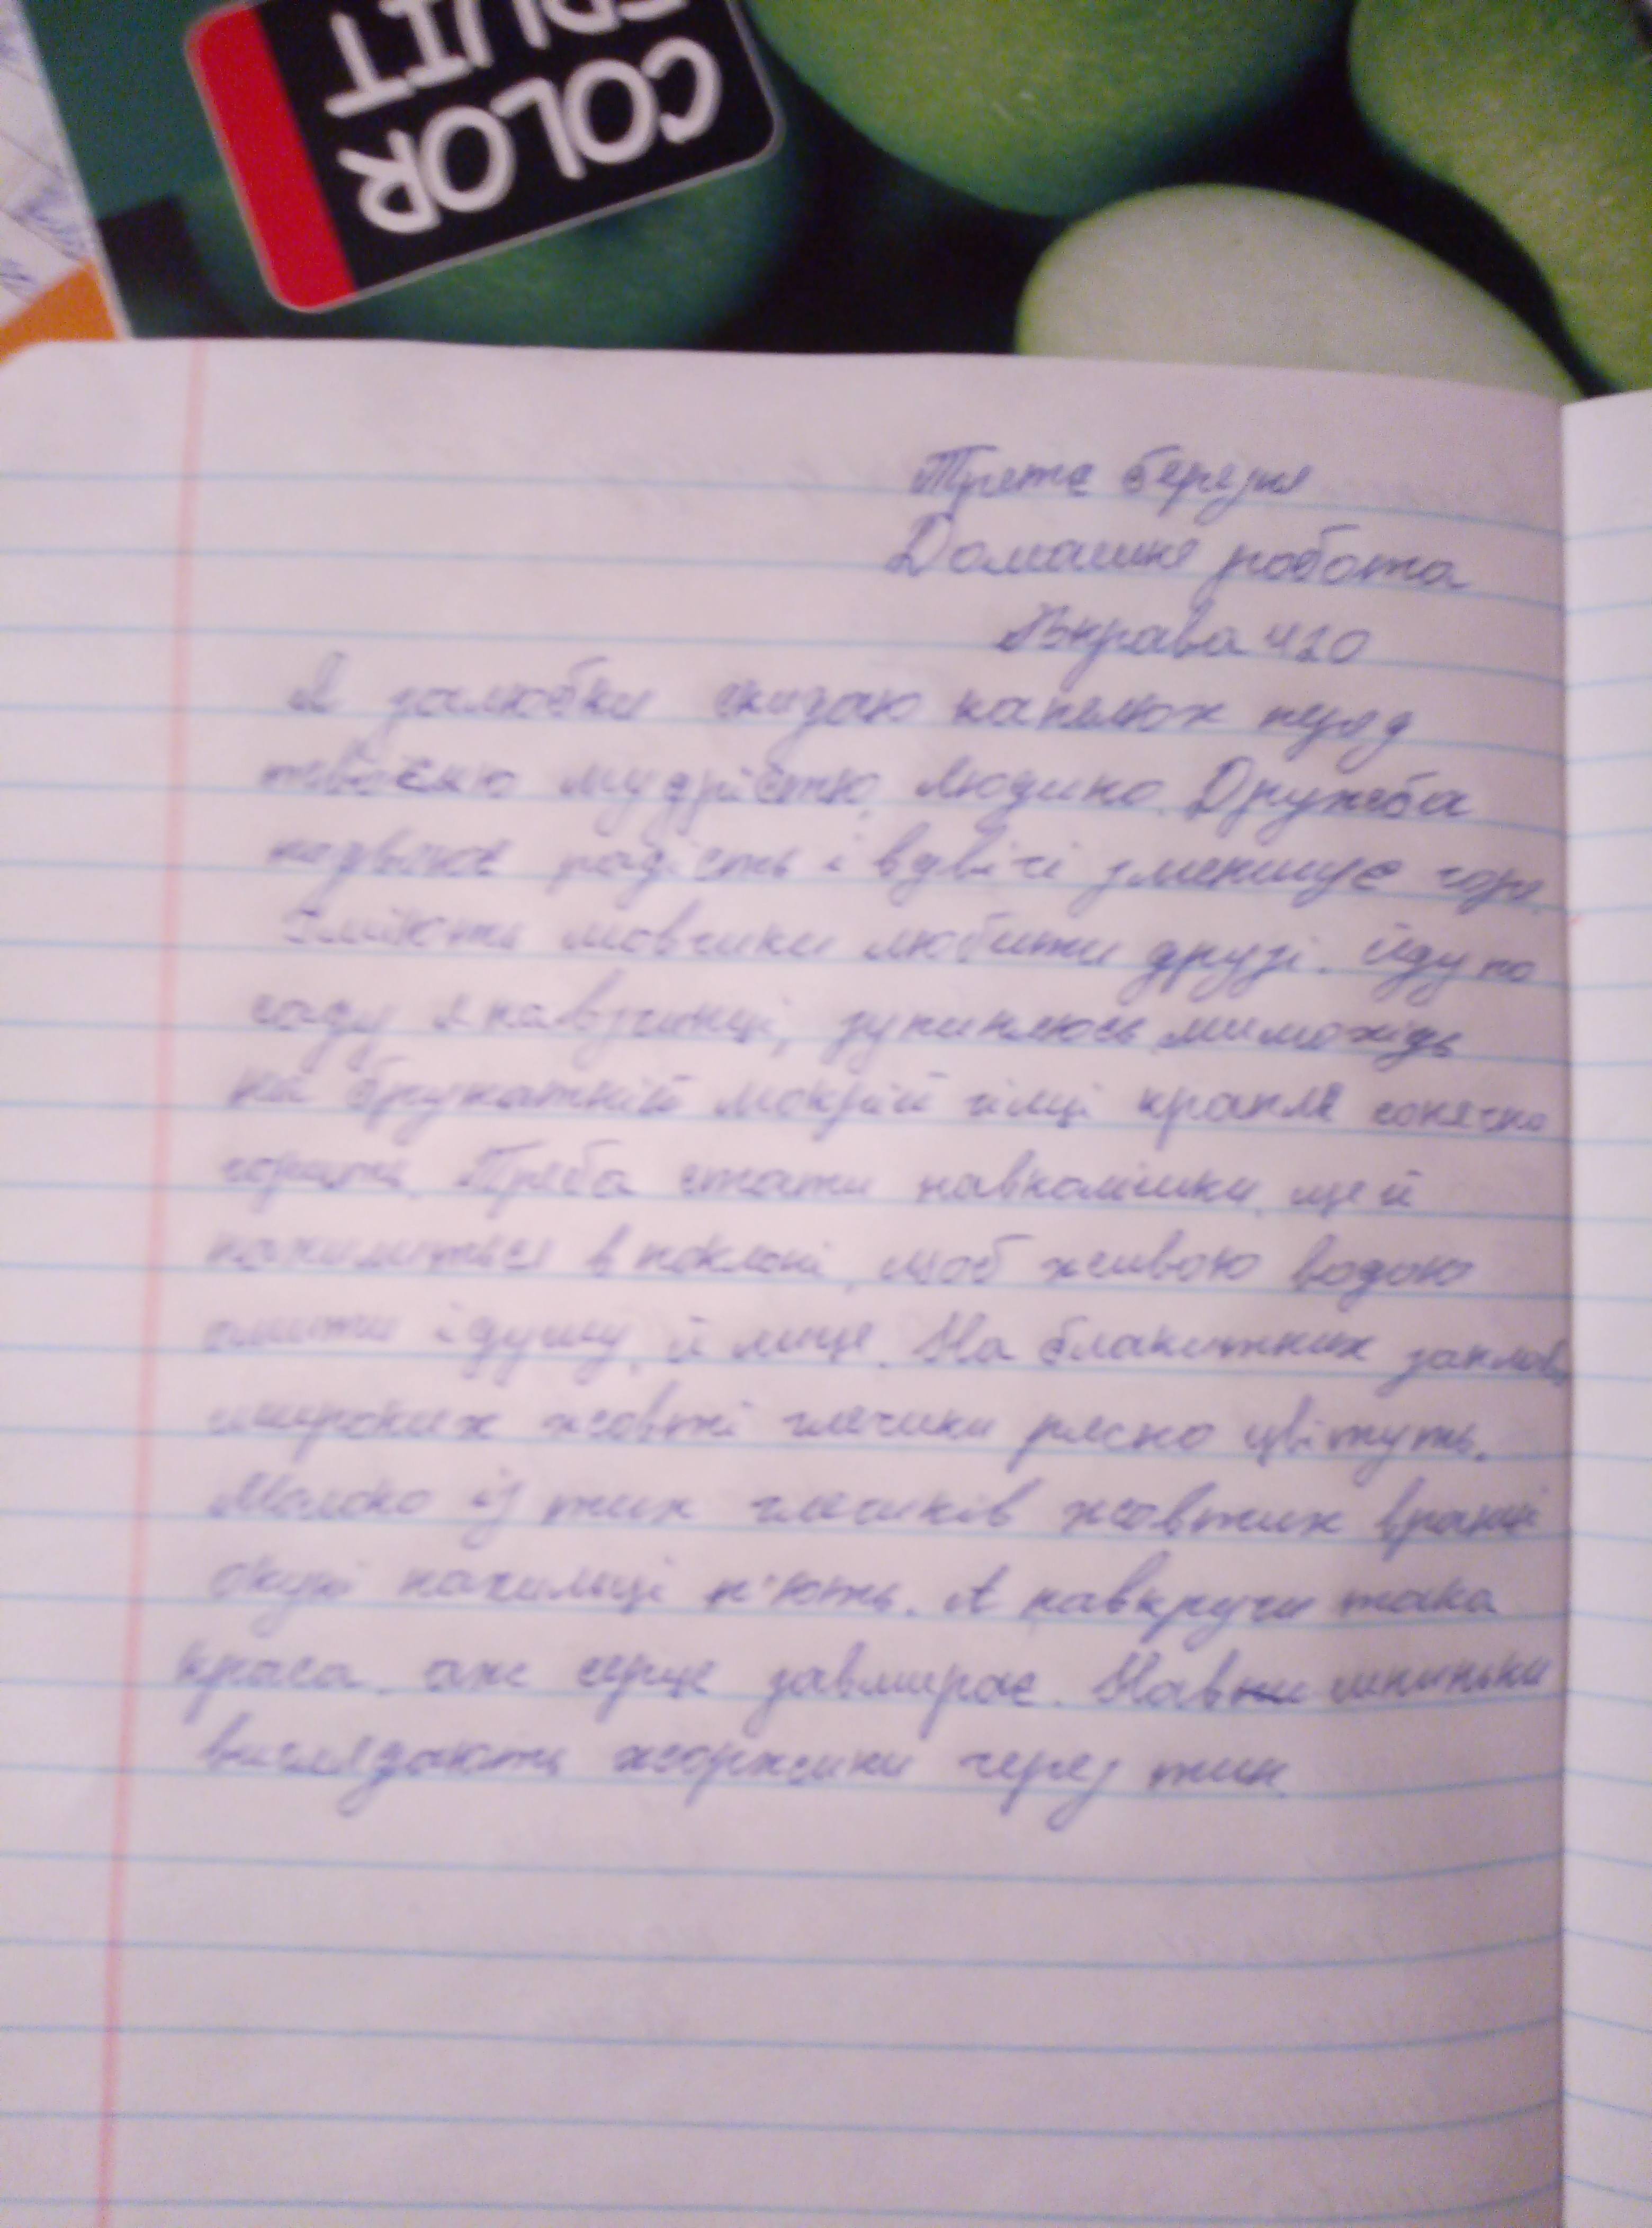 COLOR
FRUIT
Третє березня
Домашня робота
Вправа 410
Я залюбки скидаю капелюх перед
твоєю мудрістю, людино. Дружба
подвоює радість і вдвічі зменшує горе.
Уміють мовчики любити друзі. Йду по
саду я навзгинці, зупиняюсь мимохідь
на брунатній мокрій гілці крапля сонячно
горить. Треба стати навколішки, ще й
похилиться в поклоні, щоб живою водою
омити і душу, й лице. На блакитних заплавах
широких жовті глечики рясно цвітуть.
Молоко із тих глечиків жовтих вранці
окуні похильці п'ють. А навкруги така
краса, аж серце завмирає. Навшпиньки
виглядають жоржини через тин